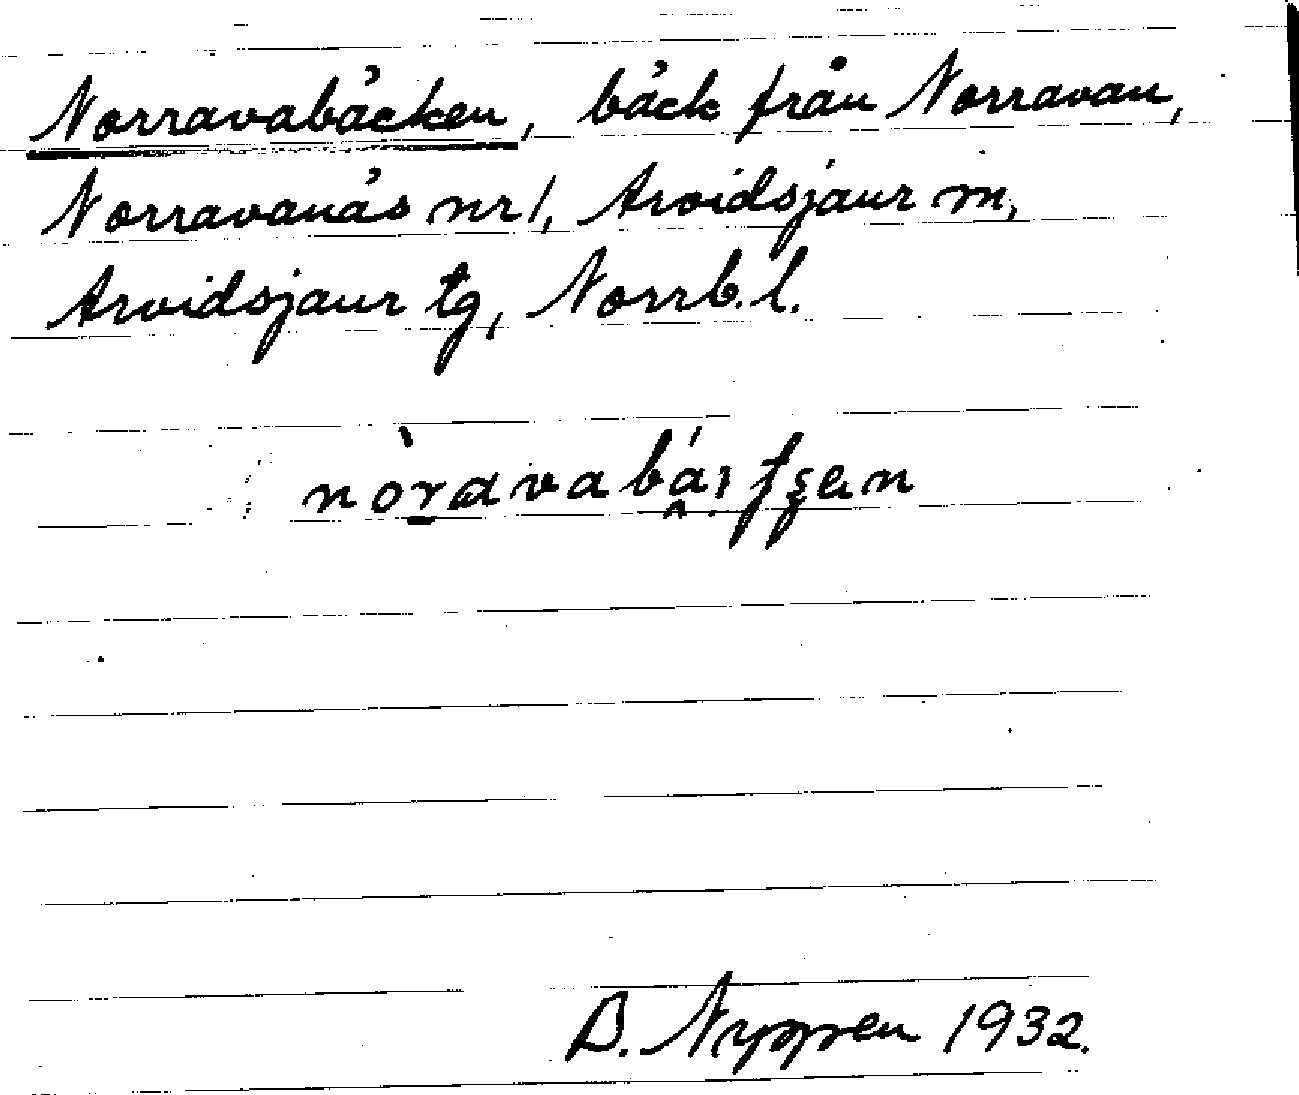 Norravabäcken, bäck från Norravan,
Norravanäs nr 1, Arvidsjaur m,
Arvidsjaur tg, Norrb. l.
B. Nyppen 1932.